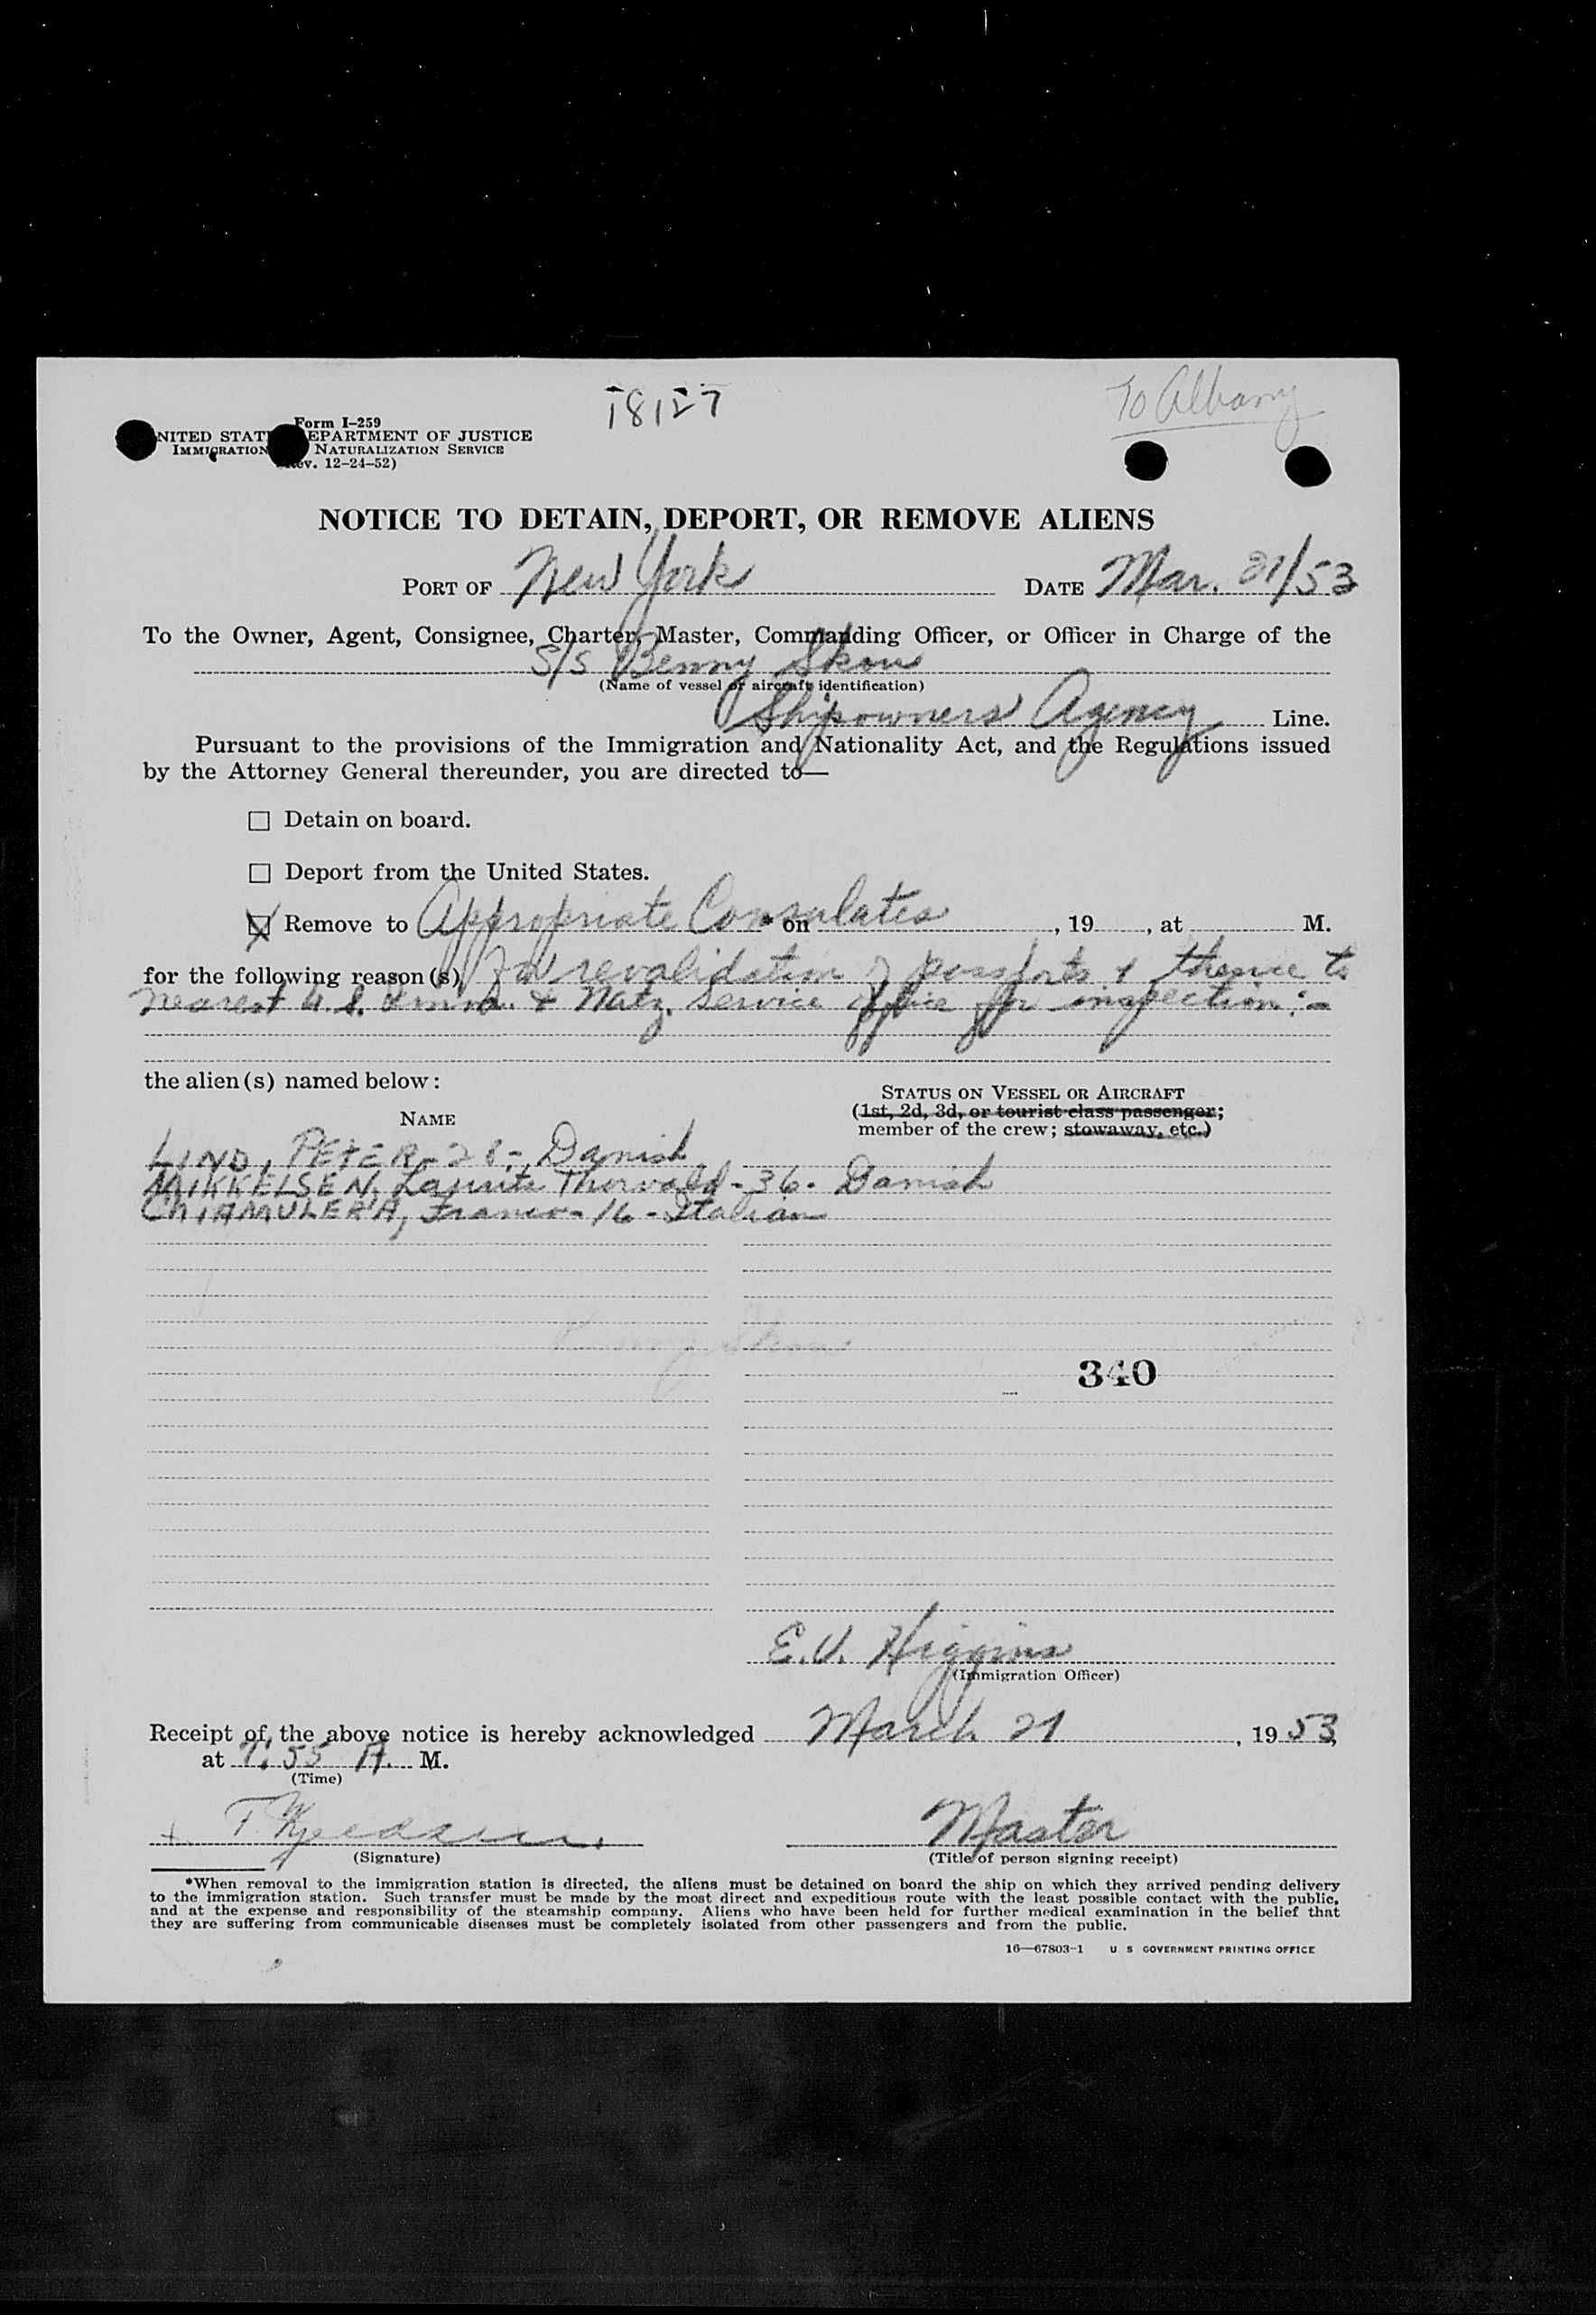 18127
To Albany
Form I-259
NITED STAT EPARTMENT OF JUSTICE
IMMIGRATION NATURALIZATION SERVICE
ev. 12-24-52)
NOTICE TO DETAIN, DEPORT, OR REMOVE ALIENS
PORT OF New York DATE Mar. 21/53
To the Owner, Agent, Consignee, Charter, Master, Commanding Officer, or Officer in Charge of the
S/S Benny Skou
(Name of vessel or aircraft identification)
Shipowners Agency Line.
Pursuant to the provisions of the Immigration and Nationality Act, and the Regulations issued
by the Attorney General thereunder, you are directed to—
☐ Detain on board.
☐ Deport from the United States.
☒ Remove to Appropriate Consulates * on , 19 , at M.
for the following reason(s) for revalidation of passports & thence to
nearest U.S. Imm. & Natz. Service office for inspection:-
the alien(s) named below:
STATUS ON VESSEL OR AIRCRAFT
NAME
(1st, 2d, 3d, or tourist class passenger;
member of the crew; stowaway, etc.)
LIND, PETER - 28 - Danish
MIKKELSEN, Laurits Thorvald - 36 - Danish
CHIAMULERA, Franco - 16 - Italian
Benny Skou
340
E.V. Higgins
(Immigration Officer)
Receipt of the above notice is hereby acknowledged March 21, 1953
at 7:55 A. M.
(Time)
Master
(Signature)
(Title of person signing receipt)
*When removal to the immigration station is directed, the aliens must be detained on board the ship on which they arrived pending delivery
to the immigration station. Such transfer must be made by the most direct and expeditious route with the least possible contact with the public,
and at the expense and responsibility of the steamship company. Aliens who have been held for further medical examination in the belief that
they are suffering from communicable diseases must be completely isolated from other passengers and from the public.
16—67803-1 U S GOVERNMENT PRINTING OFFICE